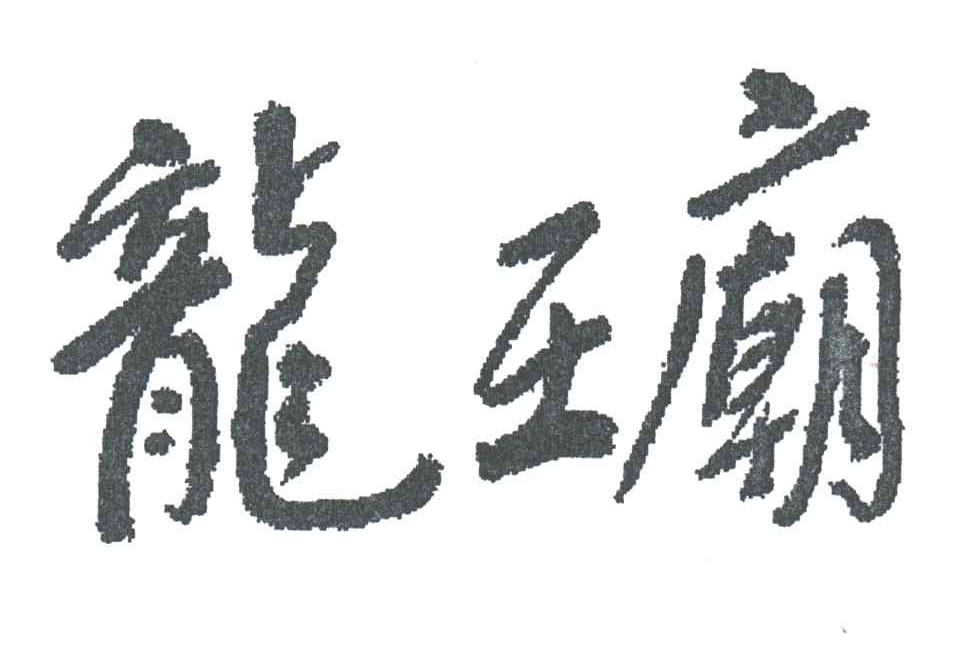 龍王廟